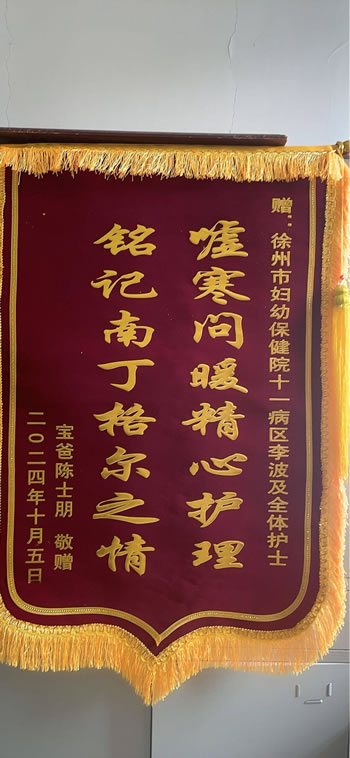 赠：徐州市妇幼保健院十一病区李波及全体护士
嘘寒问暖精心护理
铭记南丁格尔之情
宝爸陈士朋 敬赠
二〇二四年十月五日